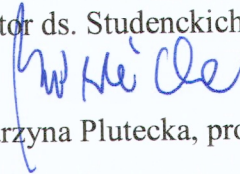 tor ds. Studenckich
arzyna Plutecka, pro